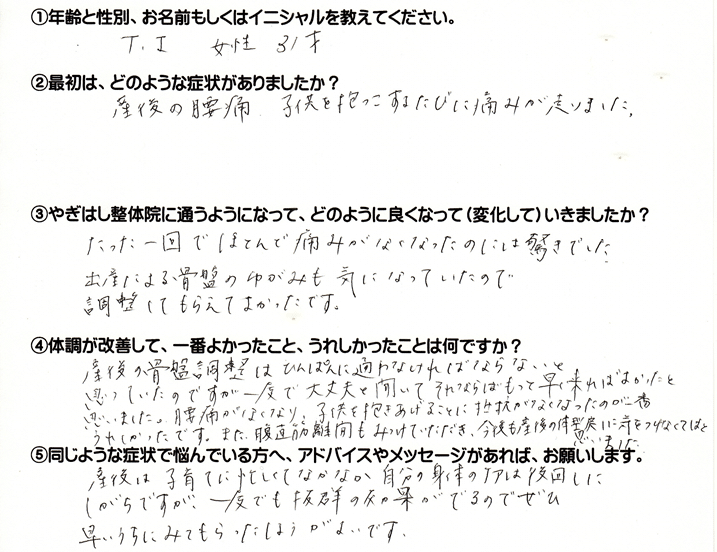 ①年齢と性別、お名前もしくはイニシャルを教えてください。
T.I 女性 31才
②最初は、どのような症状がありましたか？
産後の腰痛 子供を抱っこするたびに痛みが走りました。
③やぎはし整体院に通うようになって、どのように良くなって（変化して）いきましたか？
たった一回でほとんで痛みがなくなったのには驚きでした
出産による骨盤のゆがみも気になっていたので
調整してもらえてよかったです。
④体調が改善して、一番よかったこと、うれしかったことは何ですか？
産後の骨盤調整はひんぱんに通わなければならないと
思っていたのですが一度で大丈夫と聞いてそれならばもっと早く来ればよかったと
思いました。腰痛がなくなり、子供を抱きあげることに抵抗がなくなったのが一番
うれしかったです。また、腹直筋離開もみつけていただき、今後も産後の体型戻に気をつけなくてはと
思いました
⑤同じような症状で悩んでいる方へ、アドバイスやメッセージがあれば、お願いします。
産後は子育てに忙しくてなかなか自分の身体のケアは後回しに
しがちですが、一度でも抜群の効果がでるのでぜひ
早いうちにみてもらったほうがよいです。